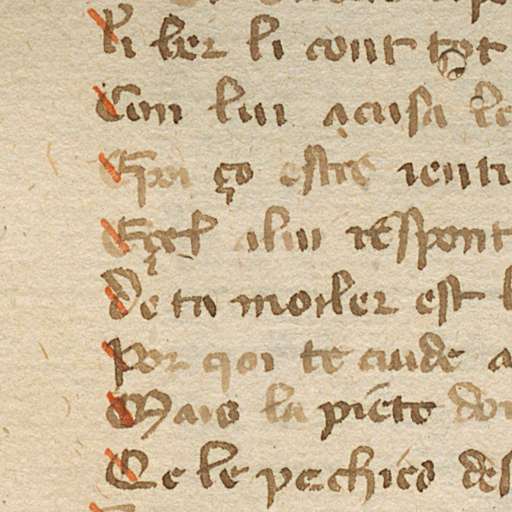 li ber li cont tot
Con lui acusa le
E poi ço estre ienti
E cel alui respont
De ta moiler est l
Por qoi te cuide a
Mais la piete do
Qe le pechies des